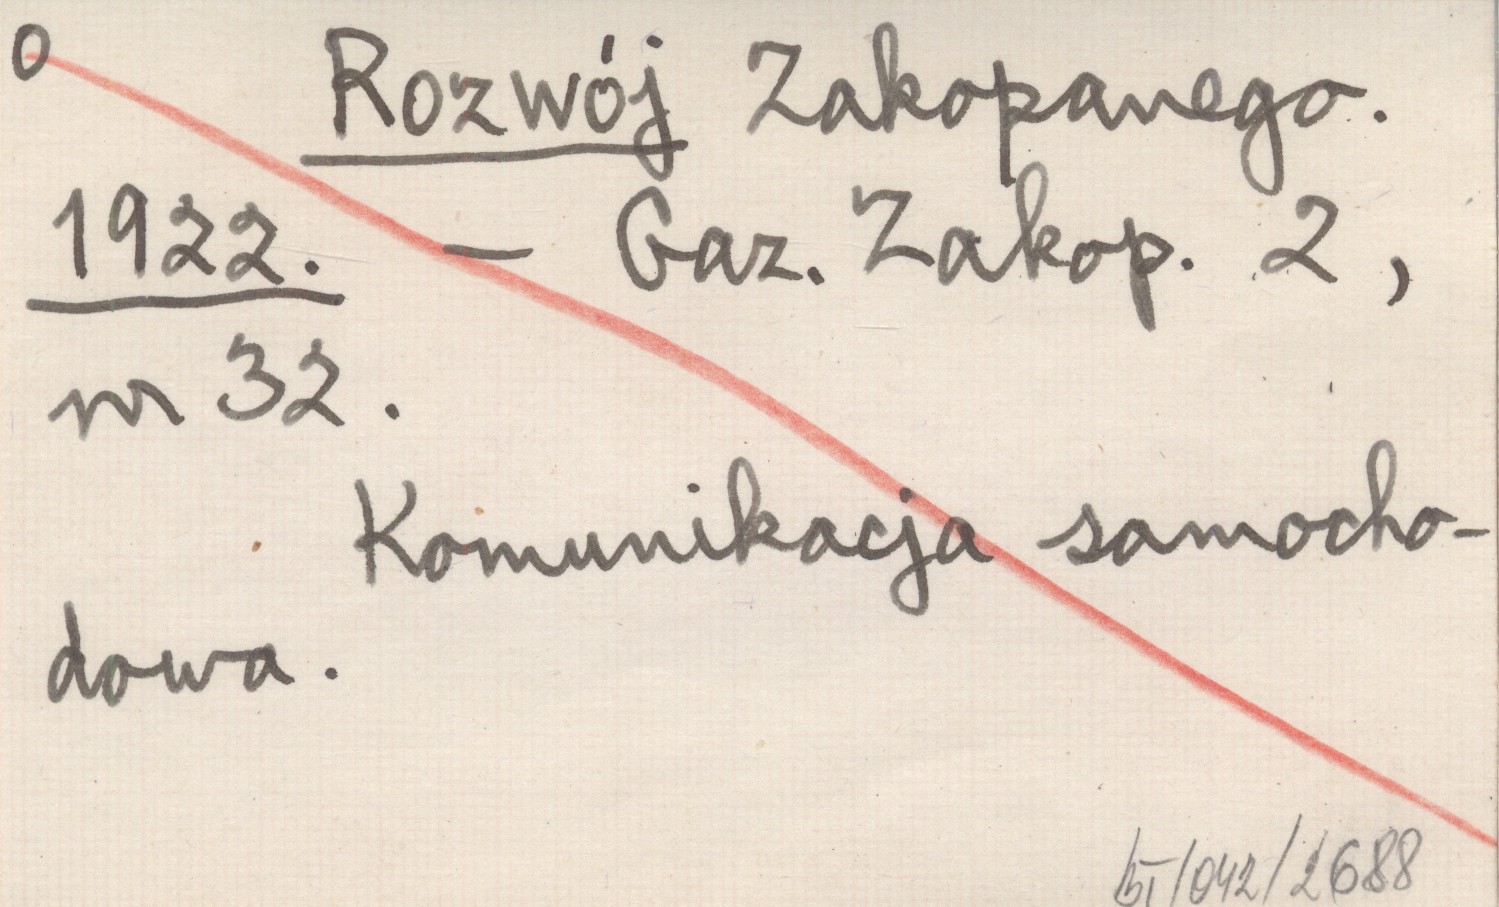 0 Rozwój Zakopanego.
1922. – Gaz. Zakop. 2,
nr 32.
Komunikacja samocho-
dowa.
/042/2688